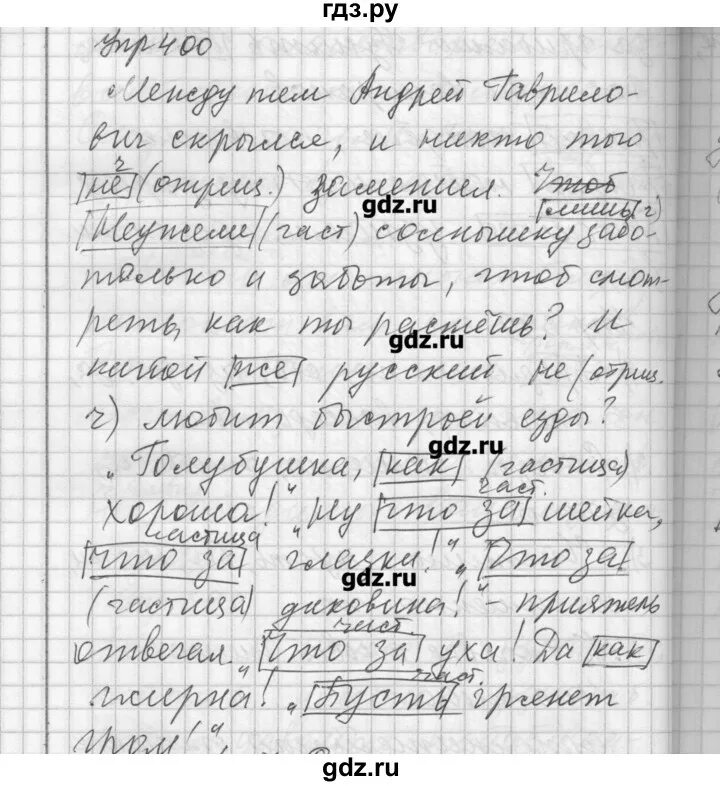 гдз.ру
Упр 400
Между тем Андрей Гаврило-
вич скрылся, и никто того
ч
не (отриц.) заметил. Чтоб
gdz.ru
лишь ч)
Неужели (част) солнышку забо-
только и заботы, чтоб смот-
реть, как ты растёшь? И
gdz.ru
какой же русский не (отриц.
ч) любит быстрой езды?
gdz.ru
"Голубушка, как (частица)
част.
хороша!" "Ну что за шейка,
частица
что за глазки!", "Что за
gdz.ru
(частица) диковина!" - приятель
част.
отвечал "Что за уха! Да как
част.
жирна!" "Пусть грянет
гром!",
gdz.ru